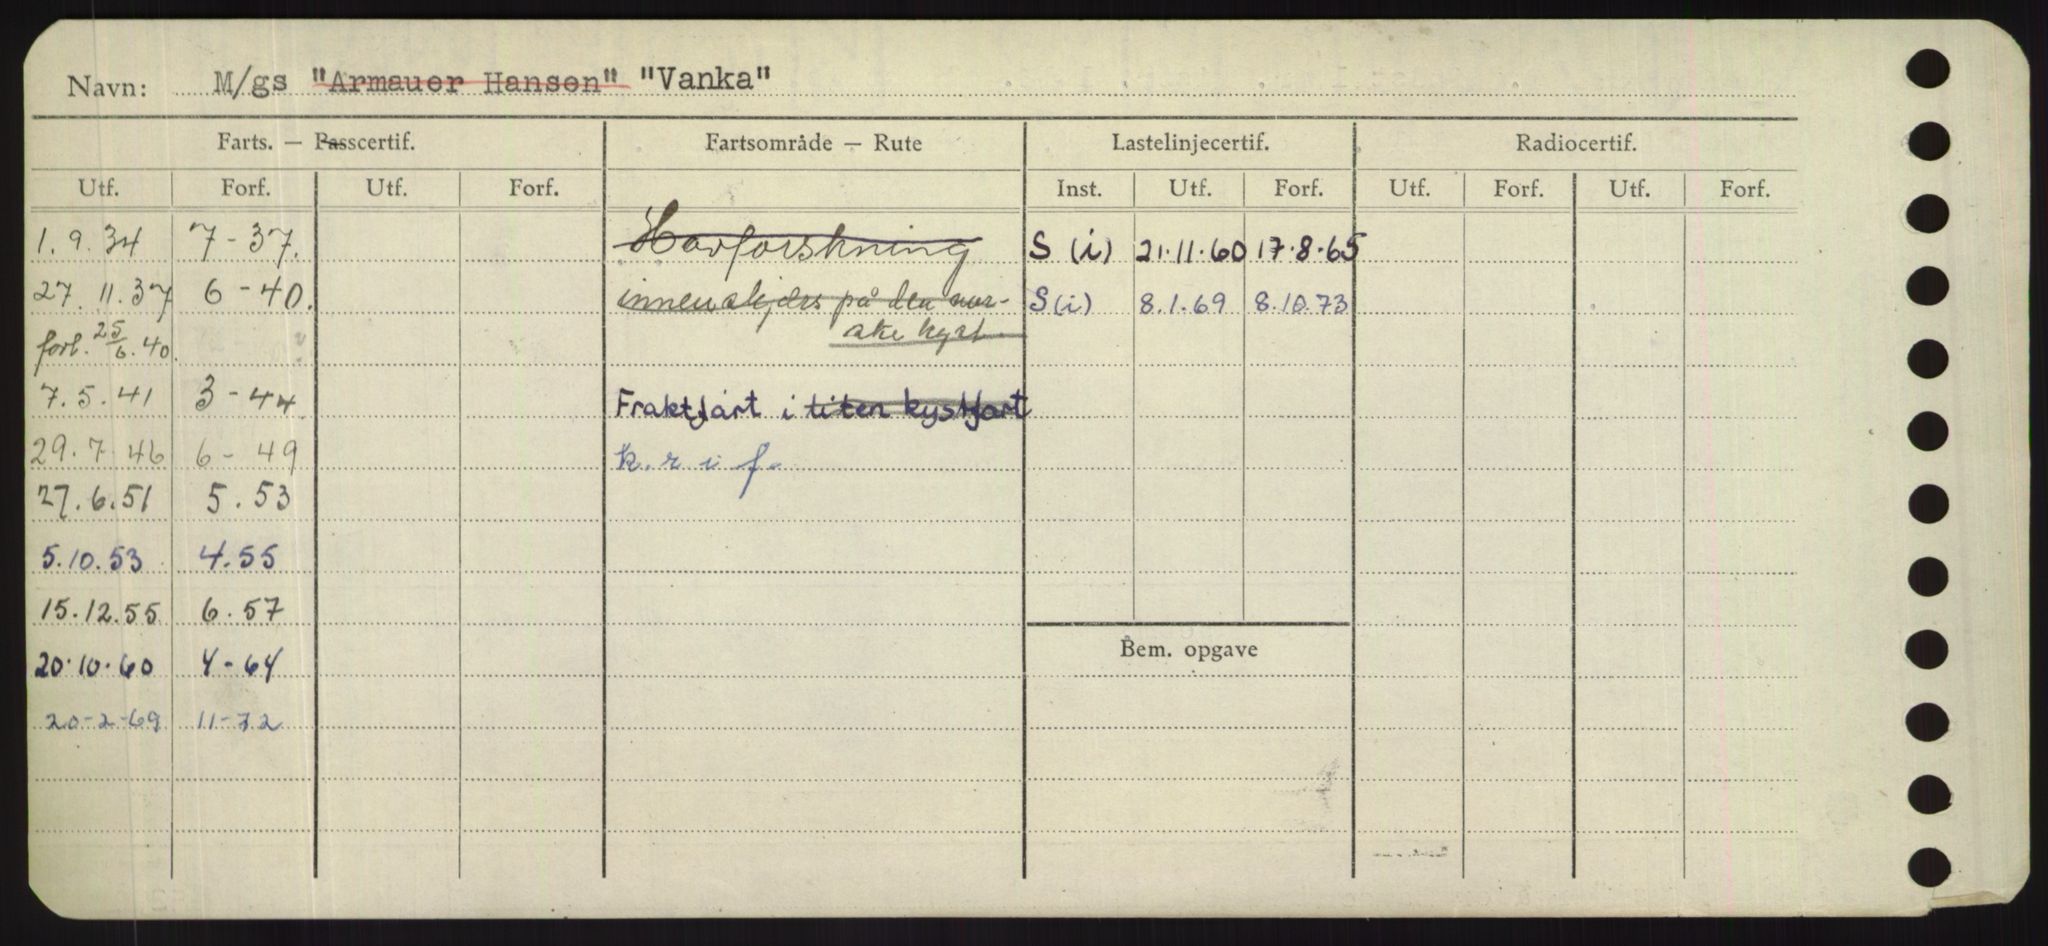 Navn: M/gs "Armauer Hansen" "Vanka"
Farts. — Passcertif. Fartsområde — Rute Lastelinjecertif. Radiocertif.
Utf. Forf. Utf. Forf. Inst. Utf. Forf. Utf. Forf. Utf. Forf.
1.9.34 7-37. Havforskning S (i) 21.11.60 17.8.65
27.11.37 6-40. innenskjærs på den nor- S(i) 8.1.69 8.10.73
forl. 25/6.40. ske kyst
7.5.41 3-44. Fraktfart i liten kystfart
29.7.46 6-49 k.r i f.
27.6.51 5.53
5.10.53 4.55
15.12.55 6.57
20.10.60 4-64
Bem. opgave
20-2-69 11-72